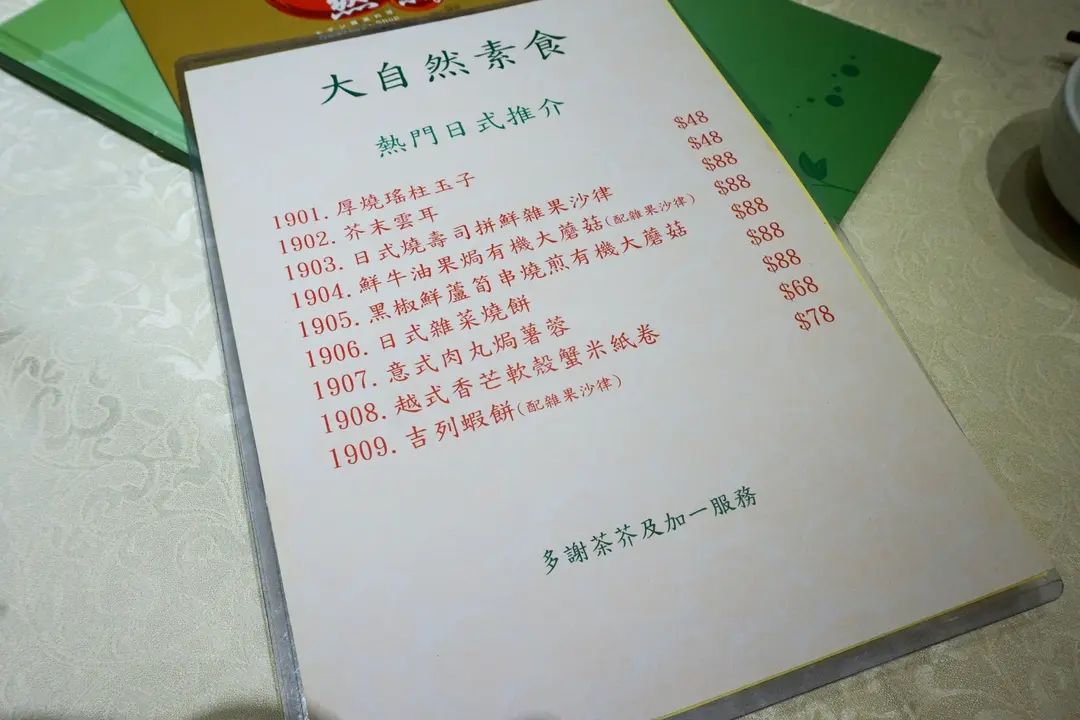 大自然素食
熱門日式推介
1901. 厚燒瑤柱玉子 $48
1902. 芥末雲耳 $48
1903. 日式燒壽司拼鮮雜果沙律 $88
1904. 鮮牛油果焗有機大蘑菇(配雜果沙律) $88
1905. 黑椒鮮蘆筍串燒煎有機大蘑菇 $88
1906. 日式雜菜燒餅 $88
1907. 意式肉丸焗薯蓉 $88
1908. 越式香芒軟殼蟹米紙卷 $68
1909. 吉列蝦餅(配雜果沙律) $78
多謝茶芥及加一服務